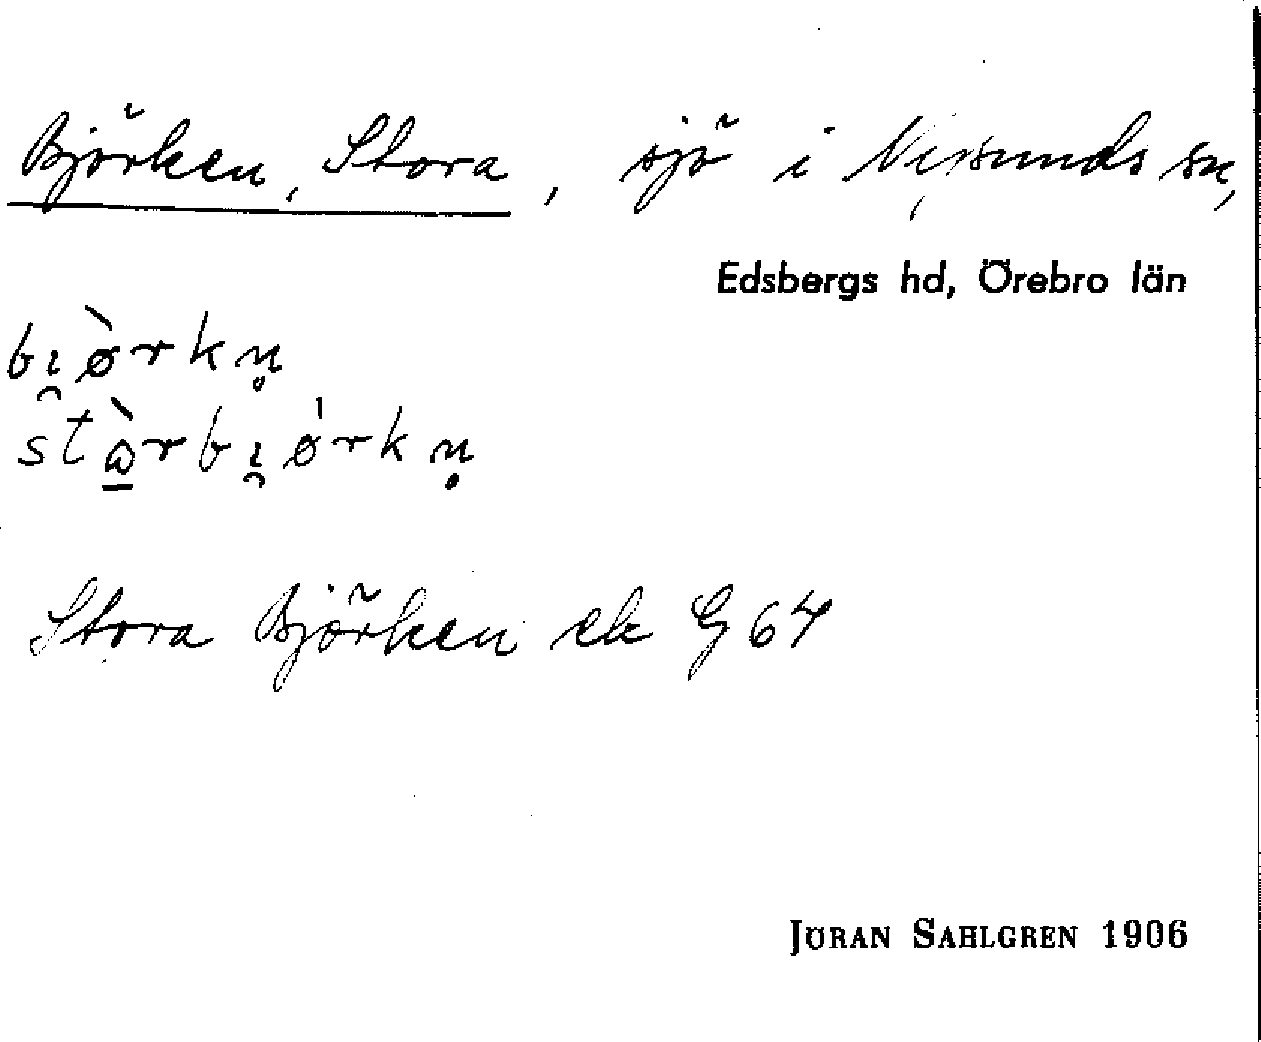 Björken, Stora, sjö i Nysunds sn,
Edsbergs hd, Örebro län
bı̯ø̀rkn̥
stὼ̲rbı̯ø̍rkn̥
Stora Björken ek G 64
JÖRAN SAHLGREN 1906